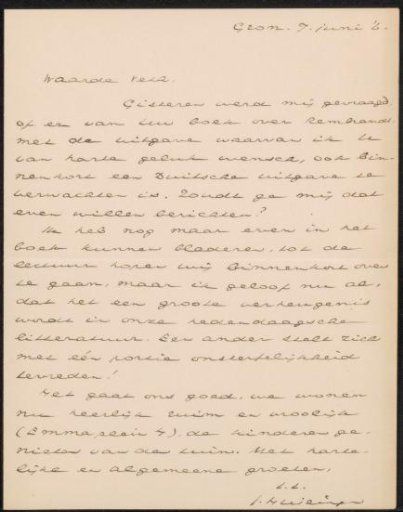 Gron. 7. juni '6.
Waarde Veth.
Gisteren werd mij gevraagd
of er van Uw boek over Rembrandt
met de uitgave waarvan ik U
van harte geluk wensch, ook bin-
nenkort een Duitsche uitgave te
verwachten is. Zoudt ge mij dat
even willen berichten?
Ik heb nog maar even in het
boek kunnen bladeren, tot de
lectuur hopen wij binnenkort over
te gaan, maar ik geloof nu al,
dat het een groote verheugenis
wordt in onze hedendaagsche
litteratuur. Een ander stelt zich
met één portie onsterfelijkheid
tevreden!
Het gaat ons goed, we wonen
nu heerlijk ruim en vroolijk
(Emmasplein 4), de kinderen ge-
nieten van de tuin. Met harte-
lijke en algemeene groeten,
t.t.
J. Huizinga